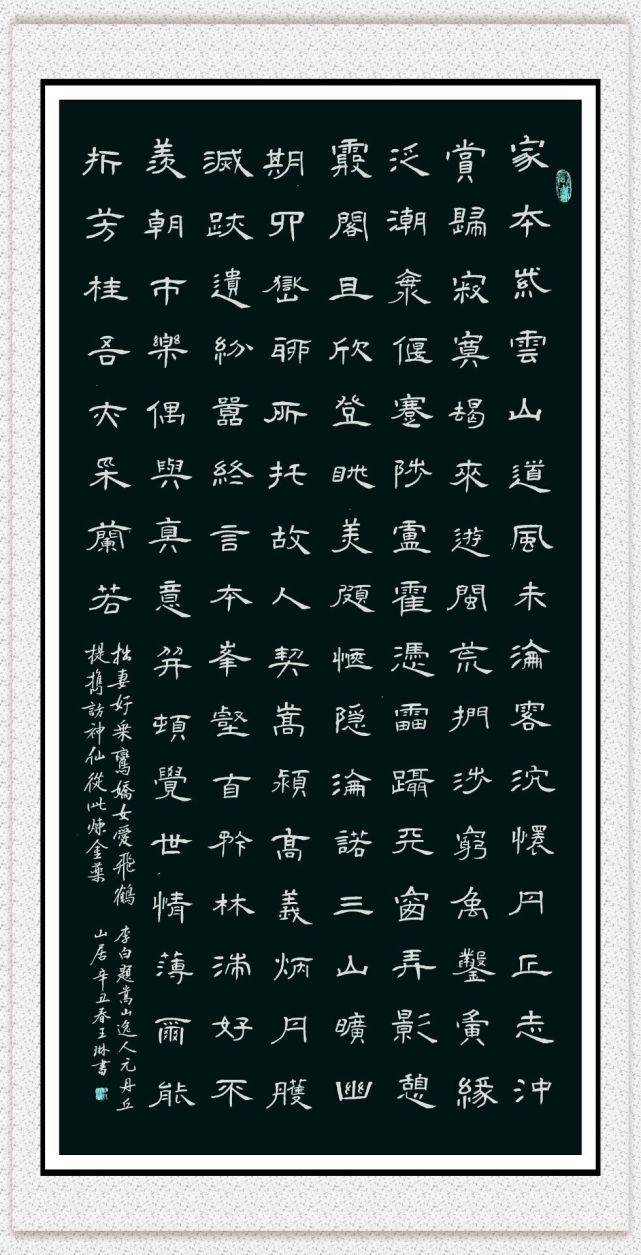 家本紫雲山道風未淪客沉懷丹丘志沖
賞歸寂寞朅來遊閩荒捫涉窮禹鑿夤緣
泛潮海偃蹇陟盧霍憑雷躡天窗弄影憩
霞閣且欣登眺美頗愜隱淪諾三山曠幽
期四嶽聊所托故人契嵩潁高義炳丹雘
滅跡遺紛囂終言本峯壑自矜林湍好不
羨朝市樂偶與真意并頓覺世情薄爾能
折芳桂吾亦采蘭若
拙妻好乘鸞嬌女愛飛鶴
提攜訪神仙從此煉金藥
李白題嵩山逸人元丹丘
山居辛丑春王琳書